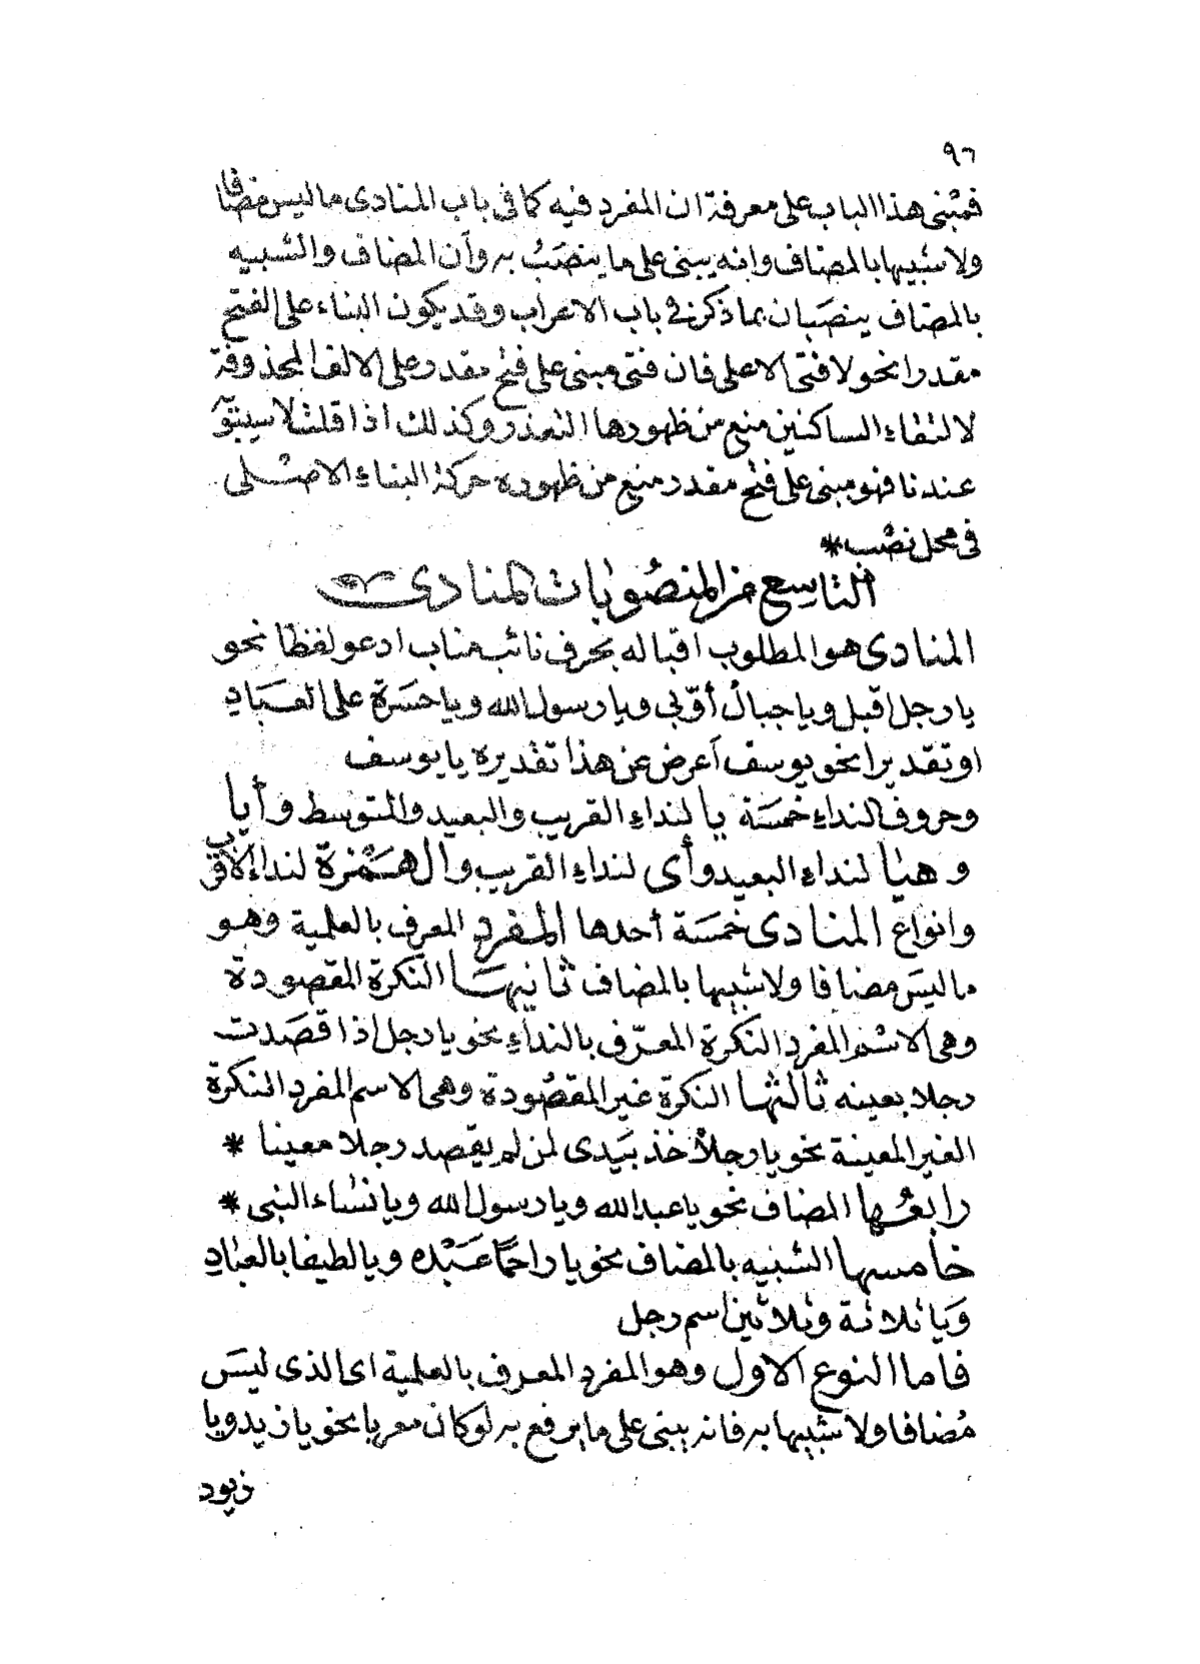 ٩٦
فمبنى هذا الباب على معرفة ان المفرد فيه كما فى باب المنادى ما ليس مضافا
ولا شبيها بالمضاف وانه يبنى على ما ينصَبُ به وأن المضاف والشبيه
بالمضاف ينصَبان بما ذكر فى باب الاعراب وقد يكون البناء على الفتح
مقدرا نحو لا فتى الا على فان فتى مبنى على فتح مقدر على الالف المحذوفة
لالتقاء الساكنين منع من ظهورها التعذر وكذلك اذا قلت لا سيبَوَيْه
عندنا فهو مبنى على فتح مقدر منع من ظهوره حركة البناء الاصلى
فى محل نصب *
التاسع من المنصوبات المنادى
المنادى هو المطلوب اقباله بحرف نائب مناب ادعو لفظا نحو
يا رجل اقبل ويا جبالُ أوّبى ويا رسول الله ويا حسَرة على العبَادِ
او تقديرا نحو يوسف أعرض عن هذا تقديره يا يوسف
وحروف النداء خمسَة يا لنداء القريب والبعيد والمتوسط وأيا
وهيا لنداء البعيد وأى لنداء القريب والهمزة لنداء الاقرب
وانواع المنادى خمسَة أحدها المفرد المعرف بالعلمية وهو
ما ليسَ مضافا ولا شبيها بالمضاف ثانيهَا النكرة المقصودة
وهى الاسْم المفرد النكرة المعرّف بالنداء نحو يا رجل اذا قصَدت
رجلا بعينه ثالثها النكرة غير المقصُودة وهى الاسم المفرد النكرة
الغير المعينة نحو يا رجلاً خذ بيَدى لمن لم يقصد رجلا معينا *
رابعُها المضاف نحو يا عبد الله ويا رسول الله ويا نساء النبى *
خامسها الشبيه بالمضاف نحو يا راحمًا عَبْده ويا لطيفا بالعبَادِ
وَيا ثلاثة وثلاثين اسم رجل
فاما النوع الاول وهو المفرد المعرف بالعلمية اى الذى ليسَ
مُضافا ولا شبيها به فانه يبنى على ما يرفع به لو كان معربا نحو يا زيد ويا
زيود